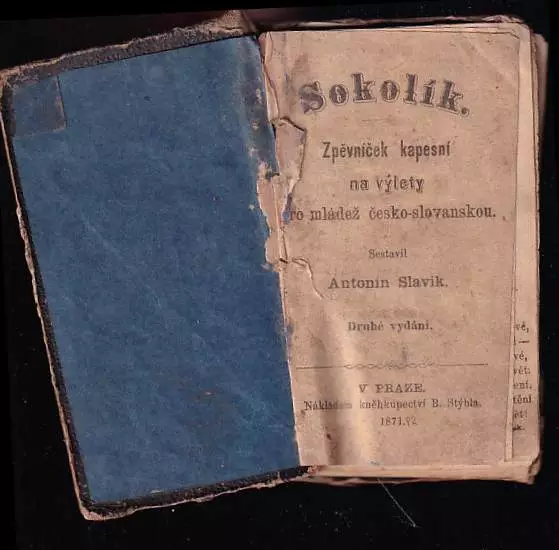 Sokolík.
Zpěvníček kapesní
na výlety
ro mládež česko-slovanskou.
Sestavil
Antonín Slavík.
Druhé vydání.
V PRAZE.
Nákladem kněhkupectví B. Stýbla.
1871.
vě,
vé,
vět:
ení.
tění